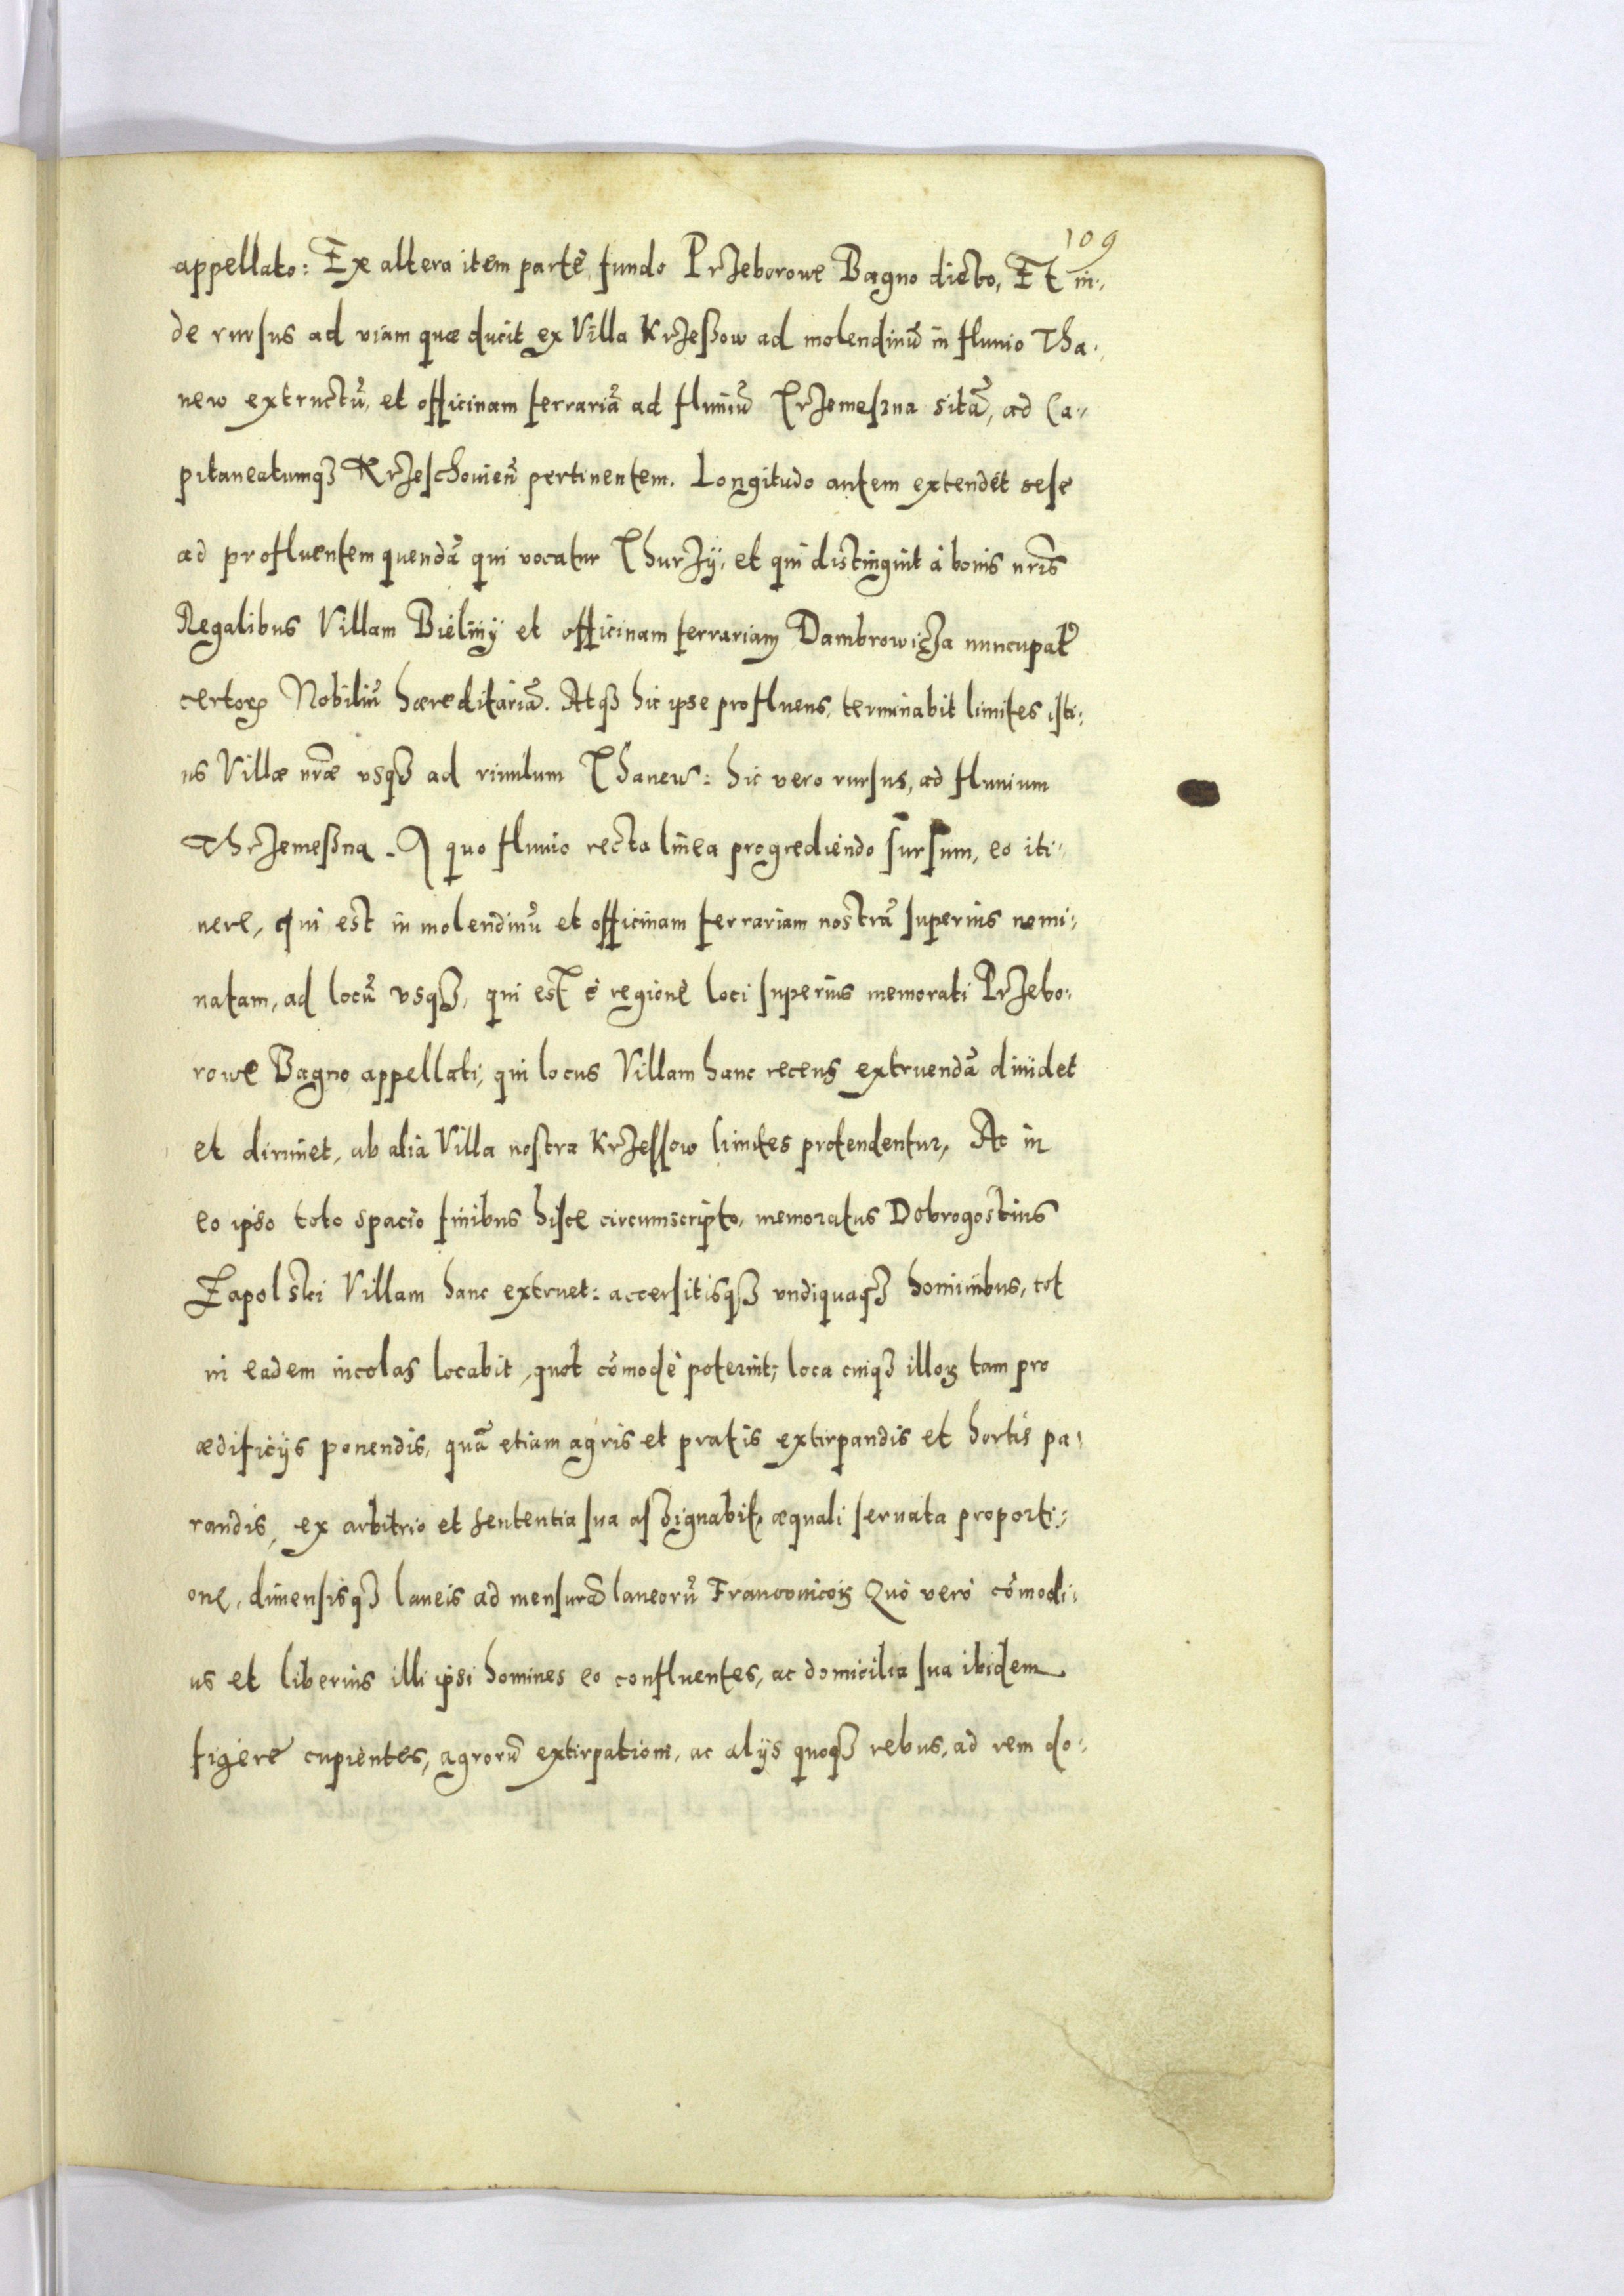 109
appellato: Ex altera item parte, fundo Przeborowe Bagno dicto, Et in:
de rursus ad viam quæ ducit ex Villa Krzeßow ad molendinũ in fluuio Tha:
new extructũ, et officinam ferrariã ad fluuiũ Trzemeszna sitã, ad Ca:
pitaneatumqȝ Krzeschouieñ pertinentem. Longitudo autem extendet sese
ad profluentem quendã qui vocatur Thurzÿ, et qui distinguit à bonis nr̃is
Regalibus Villam Bielinÿ et officinam ferrariam Dambrowicza nuncupat̃
certoꝝ Nobiliũ hæreditariã. Atqȝ hic ipse profluens, terminabit limites isti:
us Villæ nr̃æ vsqȝ ad riuulum Thanew: hic vero rursus, ad fluuium
Thrzemeßna. A quo fluuio recta linea progrediendo sursum, eo iti:
nere, qui est in molendinũ et officinam ferrariam nostrã superius nomi:
natam, ad locũ vsqȝ, qui est è regione loci superius memorati Przebo:
rowe Bagno appellati, qui locus Villam hanc recens extruendã diuidet
et dirimet, ab alia Villa nostra Krzessow limites protendentur, Ac in
eo ipso toto spacio finibus hisce circumscripto, memoratus Dobrogostius
Zapolski Villam hanc extruet: accersitisqȝ vndiquaqȝ hominibus, tot
in eadem incolas locabit, quot cõmodè poterint; loca cuiqȝ illoꝝ tam pro
ædificijs ponendis, quã etiam agris et pratis extirpandis et hortis pa:
randis, ex arbitrio et sententia sua assignabit, æquali seruata proporti:
one, dimensisqȝ laneis ad mensurã laneorũ Franconicoꝝ Quò verò cõmodi:
us et liberius illi ipsi homines eo confluentes, ac domicilia sua ibidem
figere cupientes, agrorũ extirpationi, ac alijs quoqȝ rebus, ad rem do: